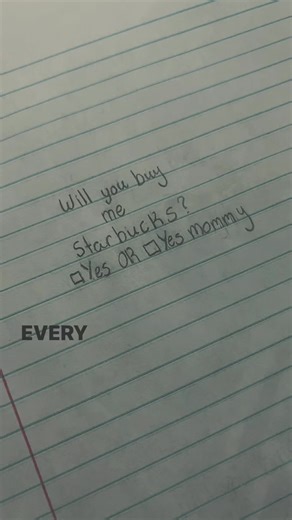 Will you buy
me
Starbucks?
☐Yes OR ☐Yes mommy
EVERY